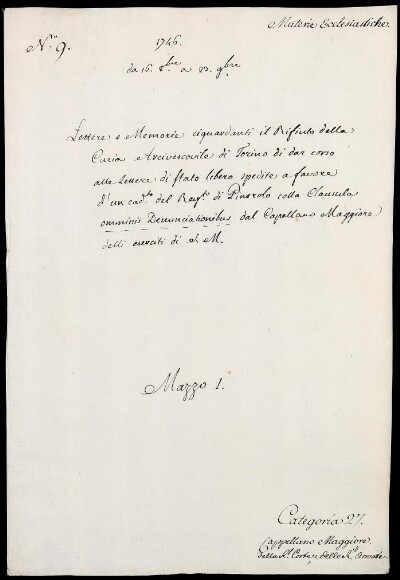 Materie Ecclesiastiche.
N.º 9.
1746.
da 16. 8bre a 23. 9bre
Lettere e Memorie riguardanti il Rifiuto della
Curia Arcivescovile di Torino di dar corso
alle Lettere di stato libero spedite a favore
d'un cad.te del Regt.º di Pinerolo colla Clausula
omminis Denunciationibus dal Capellano Maggiore
delli eserciti di S. M.
Mazzo 1.
Categoria 27.
Cappellano Maggiore
della R.l Corte, e delle R.e Armate